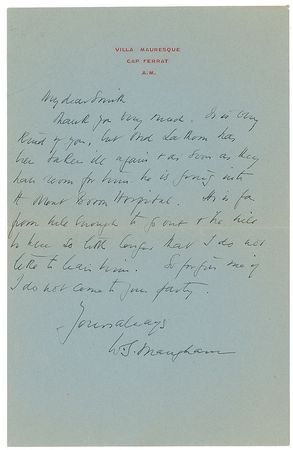 VILLA MAURESQUE
CAP FERRAT
A.M.
My dear Smith
Thank you very much. It is very
kind of you, but has
been taken ill again & as soon as they
have room for him he is going into
a Hospital. He is far
from well enough to go out & the
to have so little longer that I do not
like to leave him. So forgive me if
I do not come to your party.
Yours always
W.S. Maugham